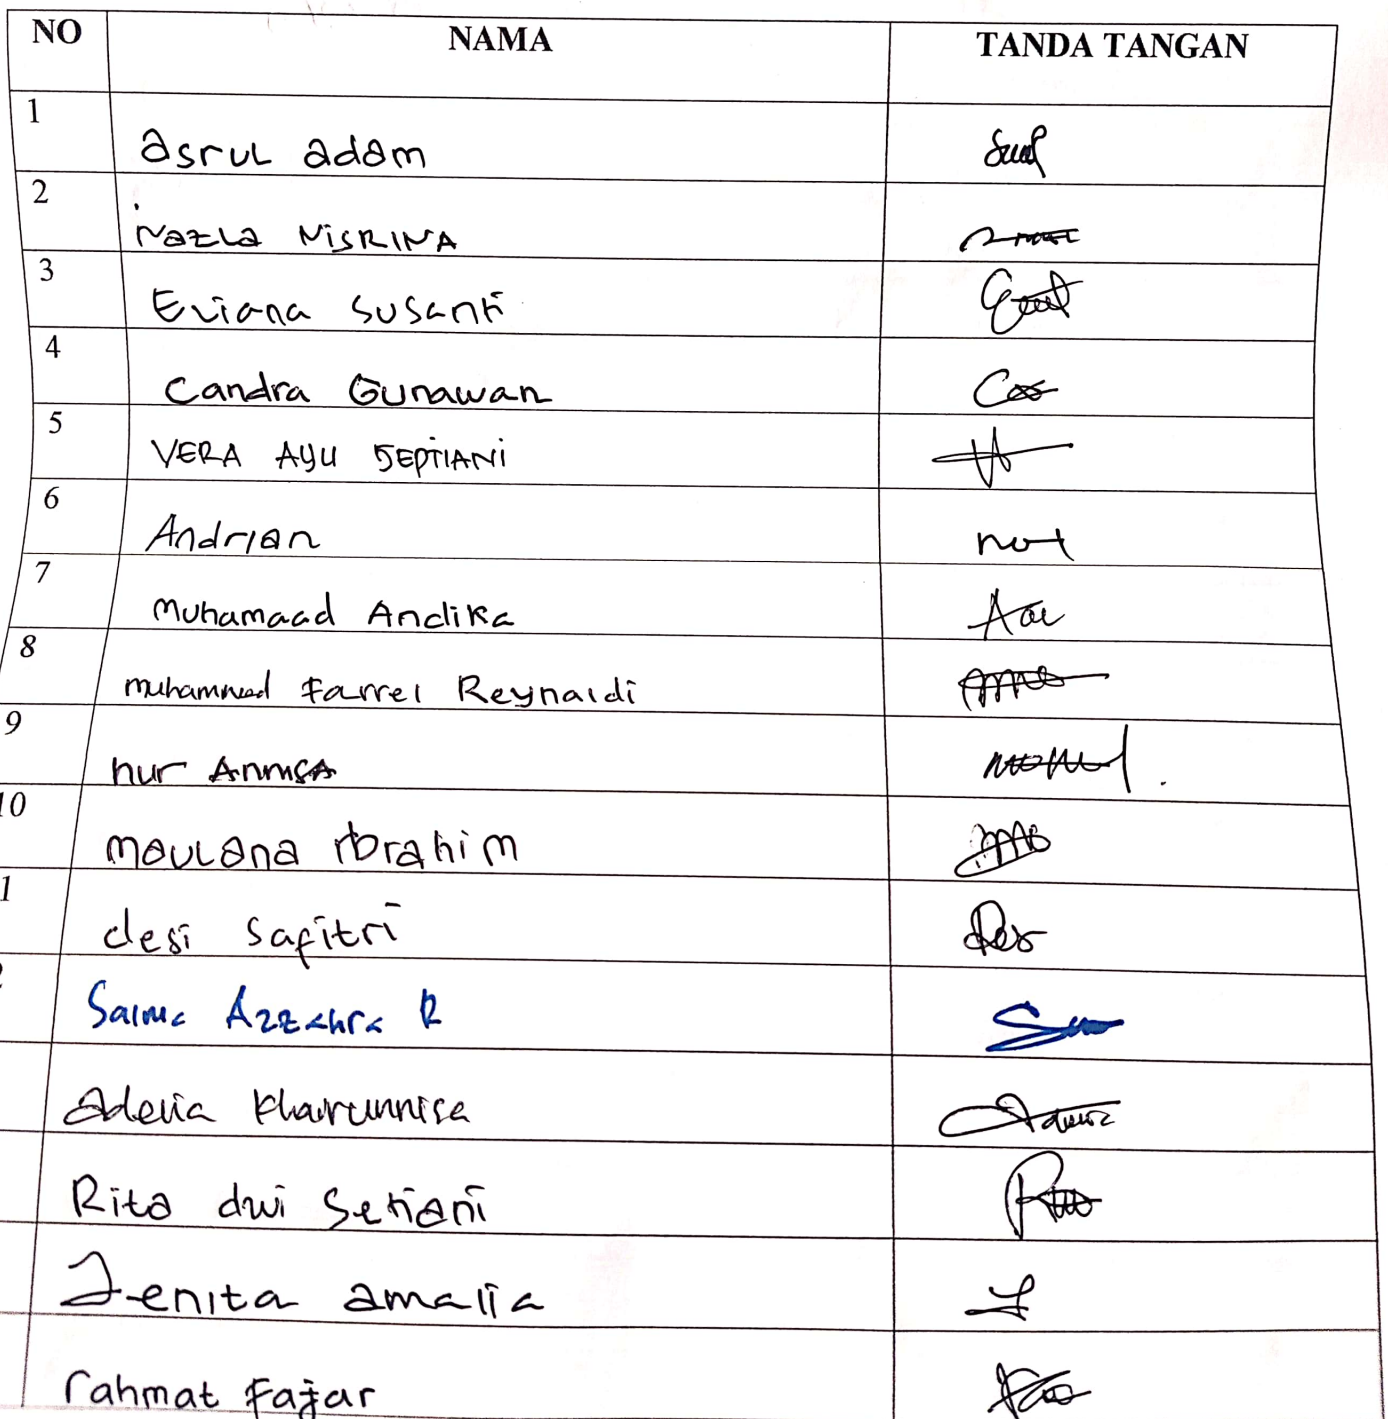 NO NAMA TANDA TANGAN
1 asrul adam
2 Nazla NISRINA
3 Eviana Susanti
4 Candra Gunawan
5 VERA AYU SEPTIANI
6 Andrian
7 Muhamaad Andika
8 muhammad Farrel Reynaldi
9 nur
10 maulana Ibrahim
1 desi Safitri
Salma Azzahra R
Adelia Khairunnisa
Rita dwi Setiani
Jenita amalia
rahmat Fajar